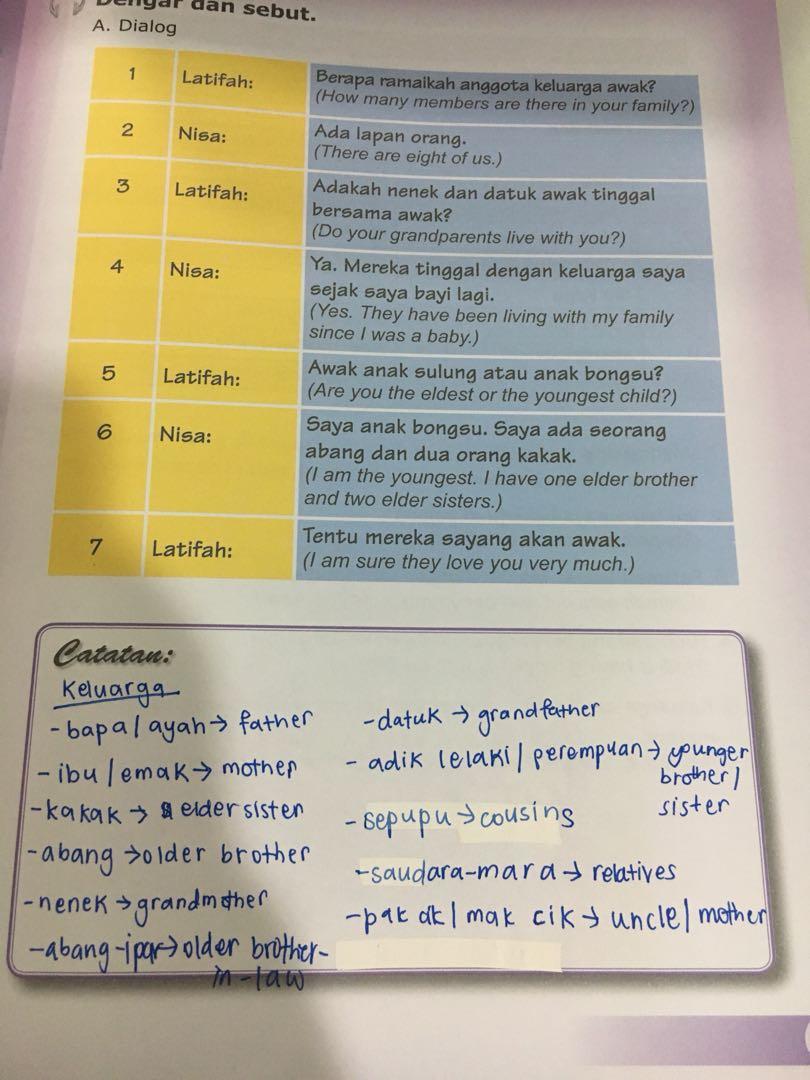 Dengar dan sebut.
A. Dialog
1 Latifah: Berapa ramaikah anggota keluarga awak?
(How many members are there in your family?)
2 Nisa: Ada lapan orang.
(There are eight of us.)
3 Latifah: Adakah nenek dan datuk awak tinggal
bersama awak?
(Do your grandparents live with you?)
4 Nisa: Ya. Mereka tinggal dengan keluarga saya
sejak saya bayi lagi.
(Yes. They have been living with my family
since I was a baby.)
5 Latifah: Awak anak sulung atau anak bongsu?
(Are you the eldest or the youngest child?)
6 Nisa: Saya anak bongsu. Saya ada seorang
abang dan dua orang kakak.
(I am the youngest. I have one elder brother
and two elder sisters.)
7 Latifah: Tentu mereka sayang akan awak.
(I am sure they love you very much.)
Catatan:
Keluarga
-bapa/ayah→ father
-ibu/emak→ mother
-kakak → elder sister
-abang →older brother
-nenek→grandmother
-abang-ipar→older brother-
in-law
-datuk → grandfather
- adik lelaki/perempuan→ younger
brother/
sister
-sepupu→cousins
-saudara-mara→ relatives
-pak cik/mak cik→ uncle/mother